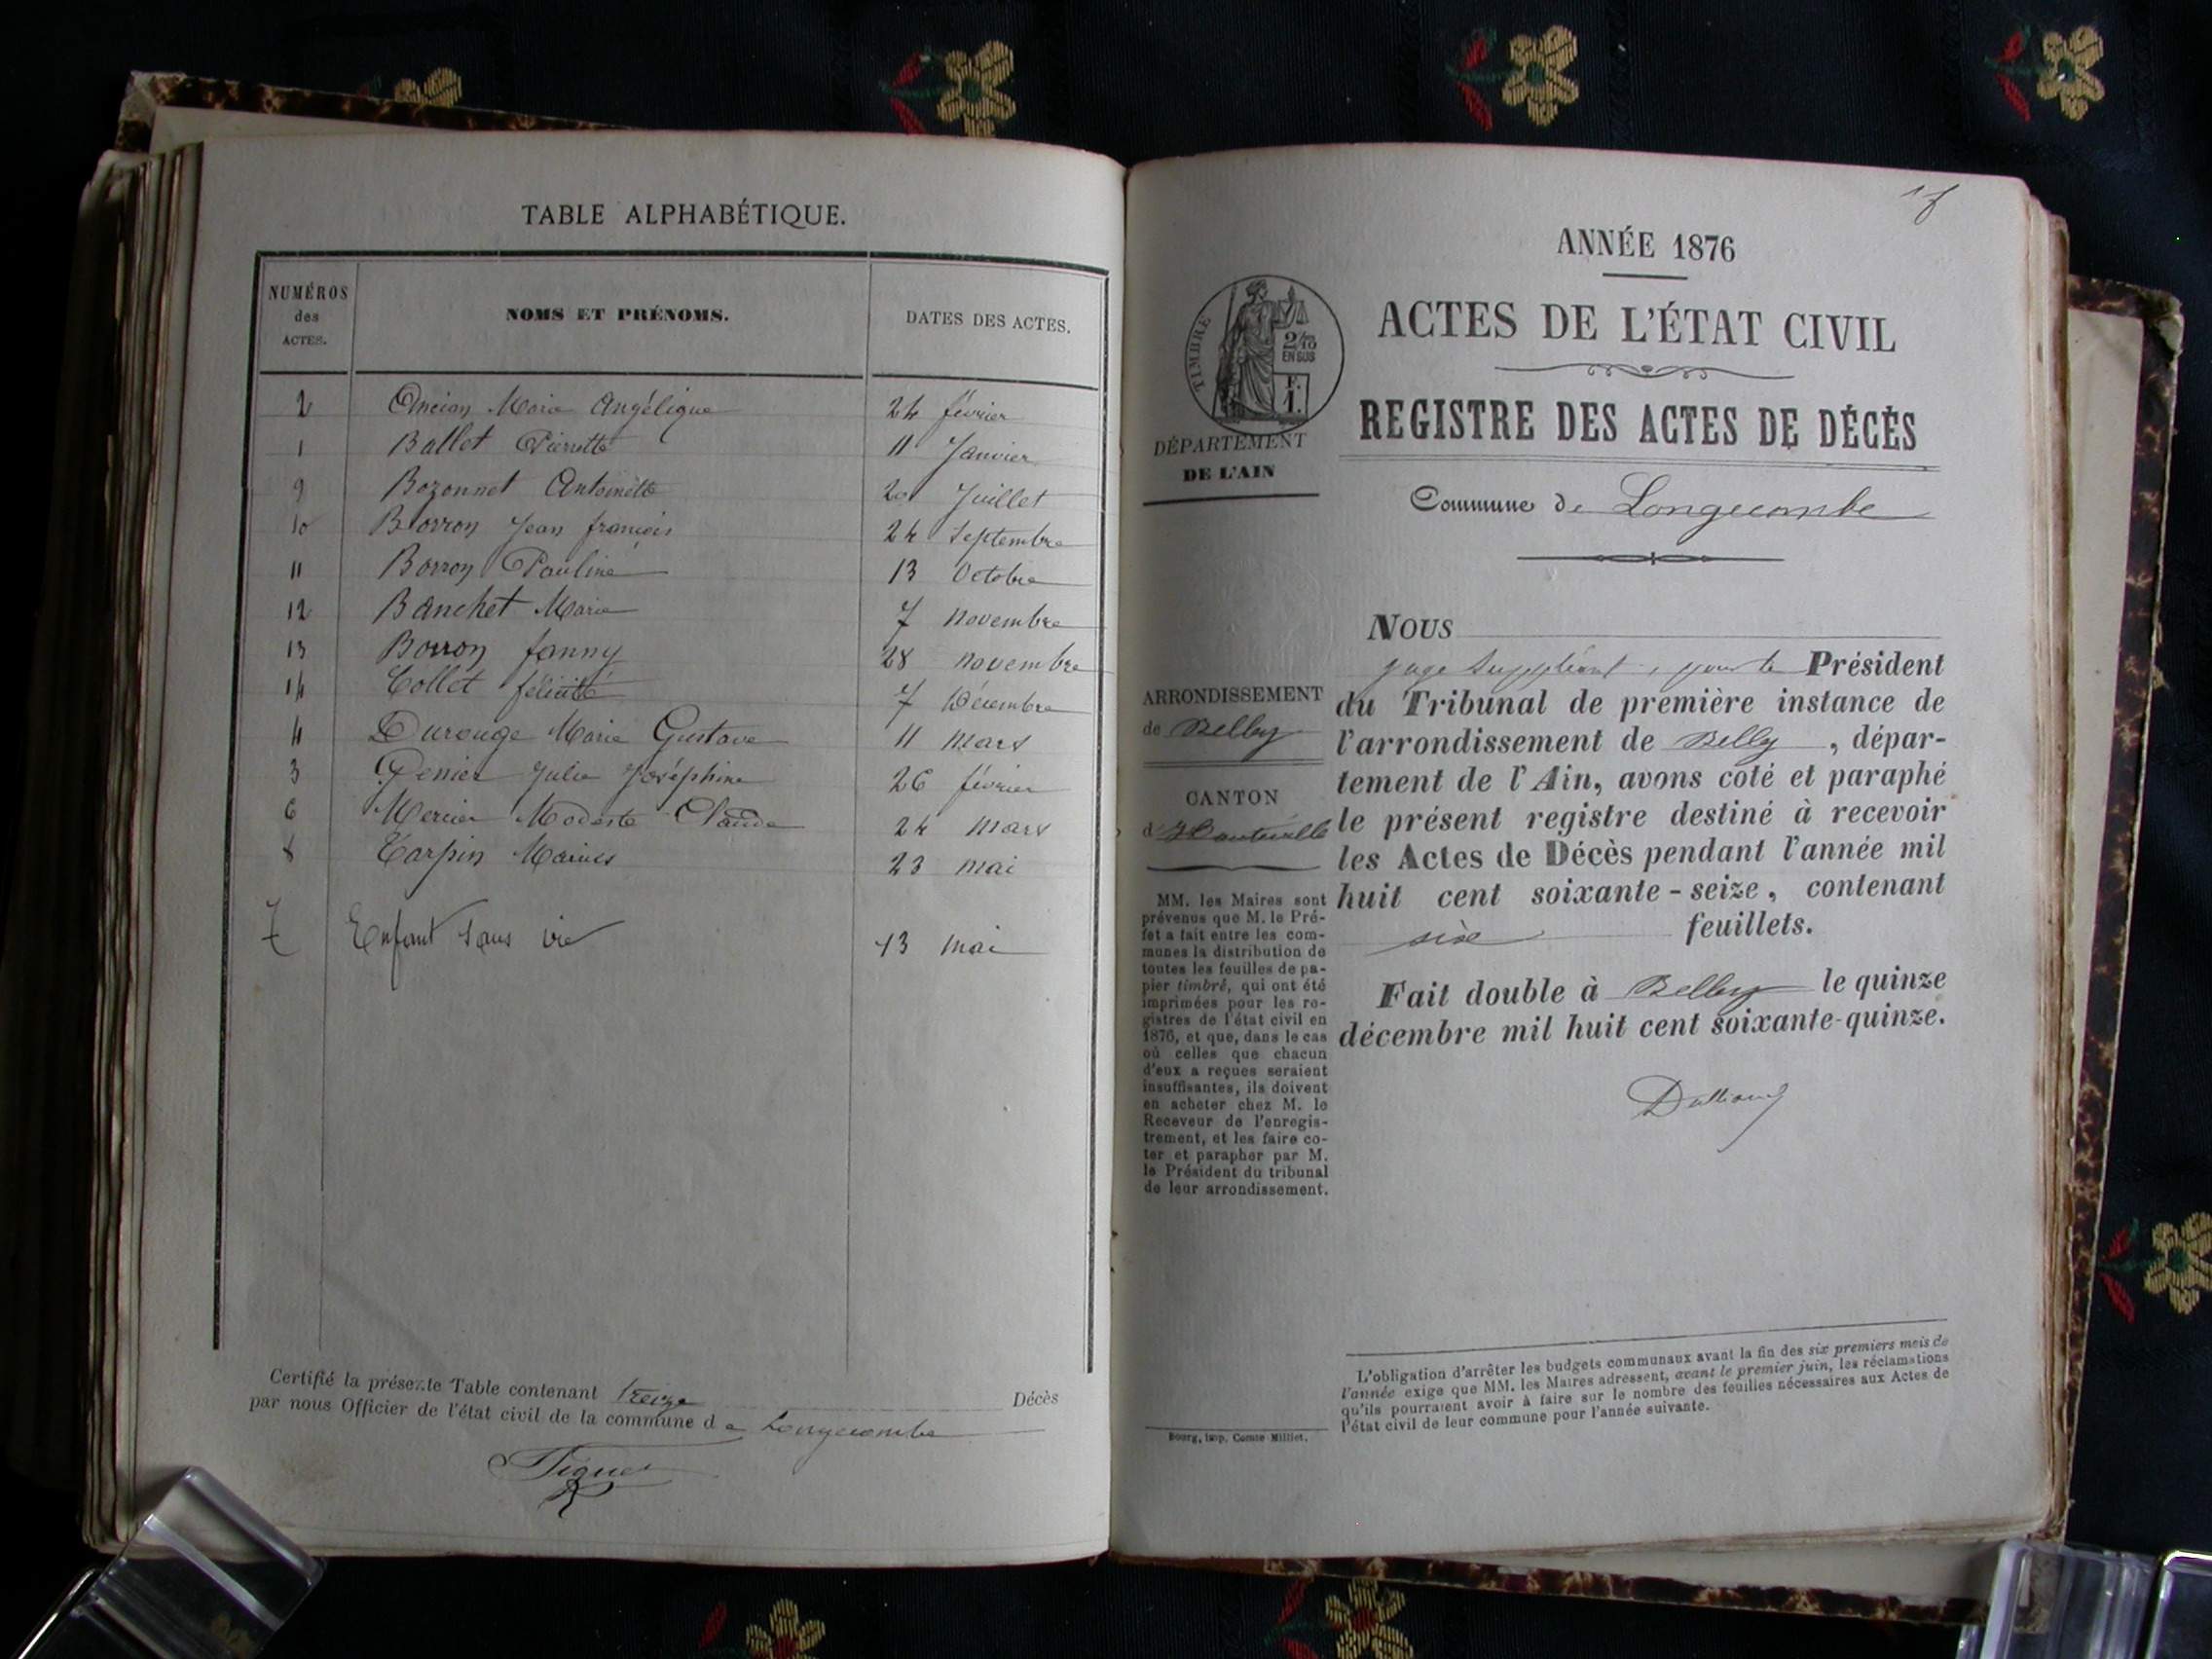 TABLE ALPHABÉTIQUE.
NUMÉROS
des
ACTES.
NOMS ET PRÉNOMS.
DATES DES ACTES.
2 Ancian Marie Angélique 24 février
1 Ballet Pierrette 11 Janvier
9 Bozonnet Antoinette 20 Juillet
10 Borron Jean françois 24 Septembre
11 Borron Pauline 13 Octobre
12 Banchet Marie 7 novembre
13 Borron fanny 28 novembre
14 Collet félicité 7 Décembre
4 Durouge Marie Gustave 11 Mars
3 Genier Julie Joséphine 26 février
6 Mercier Modeste Claude 24 Mars
8 Carpin Marius 23 mai
7 Enfant Sans vie 13 mai
Certifié la présente Table contenant treize Décès
par nous Officier de l'état civil de la commune de Longecombe
ANNÉE 1876
ACTES DE L'ÉTAT CIVIL
REGISTRE DES ACTES DE DÉCÈS
TIMBRE
2/10
EN SUS
F.
1.
DÉPARTEMENT
DE L'AIN
Commune de Longecombe
ARRONDISSEMENT
de Belley
CANTON
d'Hauteville
MM. les Maires sont
prévenus que M. le Pré-
fet a fait entre les com-
munes la distribution de
toutes les feuilles de pa-
pier timbré, qui ont été
imprimées pour les re-
gistres de l'état civil en
1876, et que, dans le cas
où celles que chacun
d'eux a reçues seraient
insuffisantes, ils doivent
en acheter chez M. le
Receveur de l'enregis-
trement, et les faire co-
ter et parapher par M.
le Président du tribunal
de leur arrondissement.
Bourg, imp. Comte-Milliet.
NOUS
juge Suppléant, pour le Président
du Tribunal de première instance de
l'arrondissement de Belley, dépar-
tement de l'Ain, avons coté et paraphé
le présent registre destiné à recevoir
les Actes de Décès pendant l'année mil
huit cent soixante-seize, contenant
six feuillets.
Fait double à Belley le quinze
décembre mil huit cent soixante-quinze.
L'obligation d'arrêter les budgets communaux avant la fin des six premiers mois de
l'année exige que MM. les Maires adressent, avant le premier juin, les réclamations
qu'ils pourraient avoir à faire sur le nombre des feuilles nécessaires aux Actes de
l'état civil de leur commune pour l'année suivante.